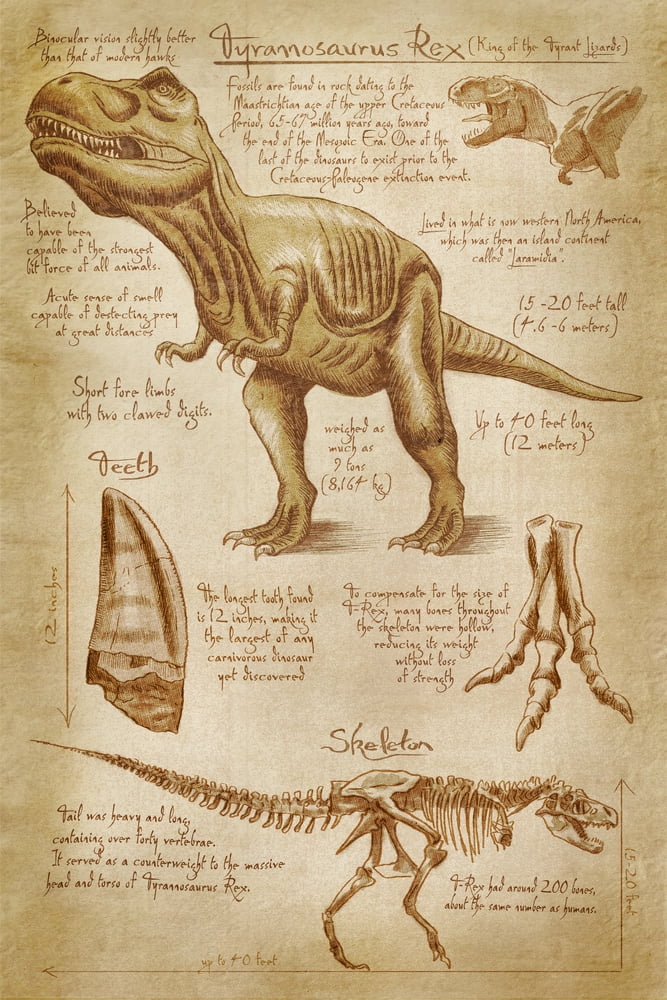 Binocular vision slightly better
than that of modern hawks
Tyrannosaurus Rex (King of the Tyrant Lizards)
Fossils are found in rock dating to the
Maastrichtian age of the upper Cretaceous
Period, 65-67 million years ago, toward
the end of the Mesozoic Era. One of the
last of the dinosaurs to exist prior to the
Cretaceous-Paleogene extinction event.
Believed
to have been
capable of the strongest
bit force of all animals.
Lived in what is now western North America,
which was then an island continent
called "Laramidia".
Acute sense of smell
capable of destecting prey
at great distances
15-20 feet tall
(4.6-6 meters)
Short fore limbs
with two clawed digits.
Up to 40 feet long
(12 meters)
weighed as
much as
9 tons
(8,164 kg)
Teeth
12 inches
The longest tooth found
is 12 inches, making it
the largest of any
carnivorous dinosaur
yet discovered
To compensate for the size of
T-Rex, many bones throughout
the skeleton were hollow,
reducing its weight
without loss
of strength
Skeleton
Tail was heavy and long,
containing over forty vertebrae.
It served as a counterweight to the massive
head and torso of Tyrannosaurus Rex.
T-Rex had around 200 bones,
about the same number as humans.
15-20 feet
up to 40 feet